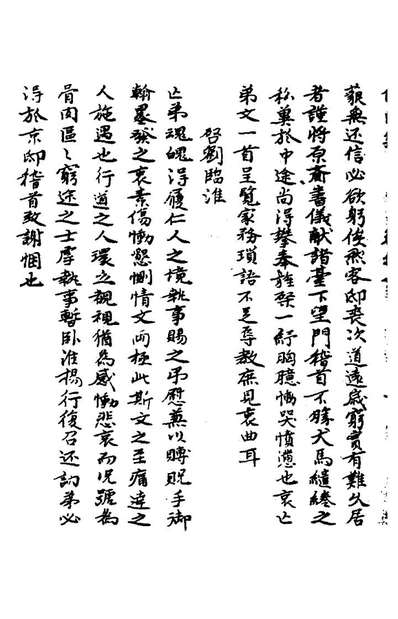 藐無还信必欲躬俟燕客邸喪次道遠感窮實有難久居
者謹將原齎書儀献諸臺下望門稽首不勝犬馬繾綣之
私奠於中途尚得攀奉旌棨一紓胸臆慟哭憤懣也哀亡
弟文一首呈覧家務瑣語不足辱教庶見哀曲耳
啓劉臨淮
亡弟魂魄得履仁人之境執事賜之弔慰兼以賻貺手御
翰墨發之哀素傷慟慇惻情文両極此斯文之至痛達之
人施遇也行道之人環之觀視猶為感慟悲哀而况號為
骨肉區〻窮途之士厚執事暫卧淮楊行復召还訥弟必
得於京邸稽首致謝悃也